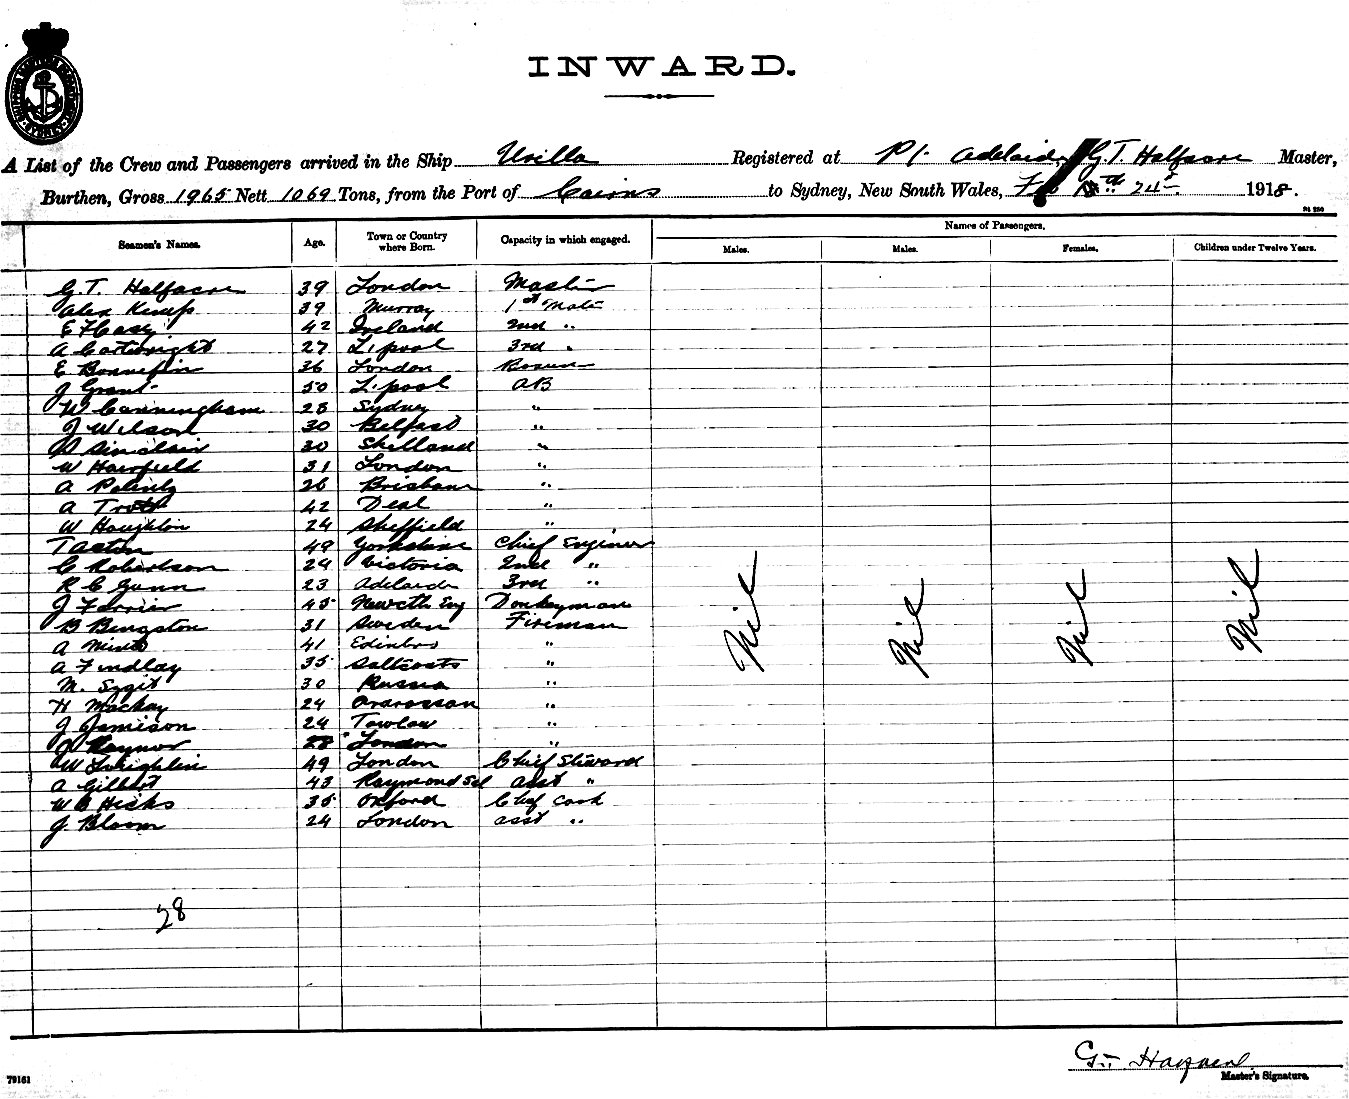 INWARD.
A List of the Crew and Passengers arrived in the Ship Urilla Registered at P/. Adelaide, G.T. Halfacre Master,
Burthen, Gross 1965 Nett 1069 Tons, from the Port of Cairns to Sydney, New South Wales, Feb 24th 1918.
Seamen's Names. Age. Town or Country where Born. Capacity in which engaged. Names of Passengers.
Males. Males. Females. Children under Twelve Years.
G.T. Halfacre 39 London Master
Alex Kemp 39 Murray 1st Mate
E 42 Ireland 2nd "
A Cartwright 27 L.pool 3rd "
E 36 London Bosun
J Grant 50 L.pool AB
W Cunningham 28 Sydney "
J Wilson 30 Belfast "
Sinclair 30 Shetland "
W Hairfield 31 London "
A 26 Brisbane "
A 42 Deal "
W Houghton 24 Sheffield "
49 Yorkshire Chief Engineer
C Robertson 24 Victoria 2nd "
R C Gunn 23 Adelaide 3rd "
J Ferrier 45 Newctle Eng Donkeyman
B Bengston 31 Sweden Fireman
A 41 Edinbro "
A Findlay 35 Saltcoats "
M. 30 Russia "
H Mackay 24 Ardrossan "
J Jamieson 24 "
Raynor 28 London "
W 49 London Chief Steward
A Gilbert 43 Asst "
W B Hicks 35 Oxford Chief Cook
J. Bloom 24 London Asst "
Nil Nil Nil Nil
28
Master's Signature.
79161